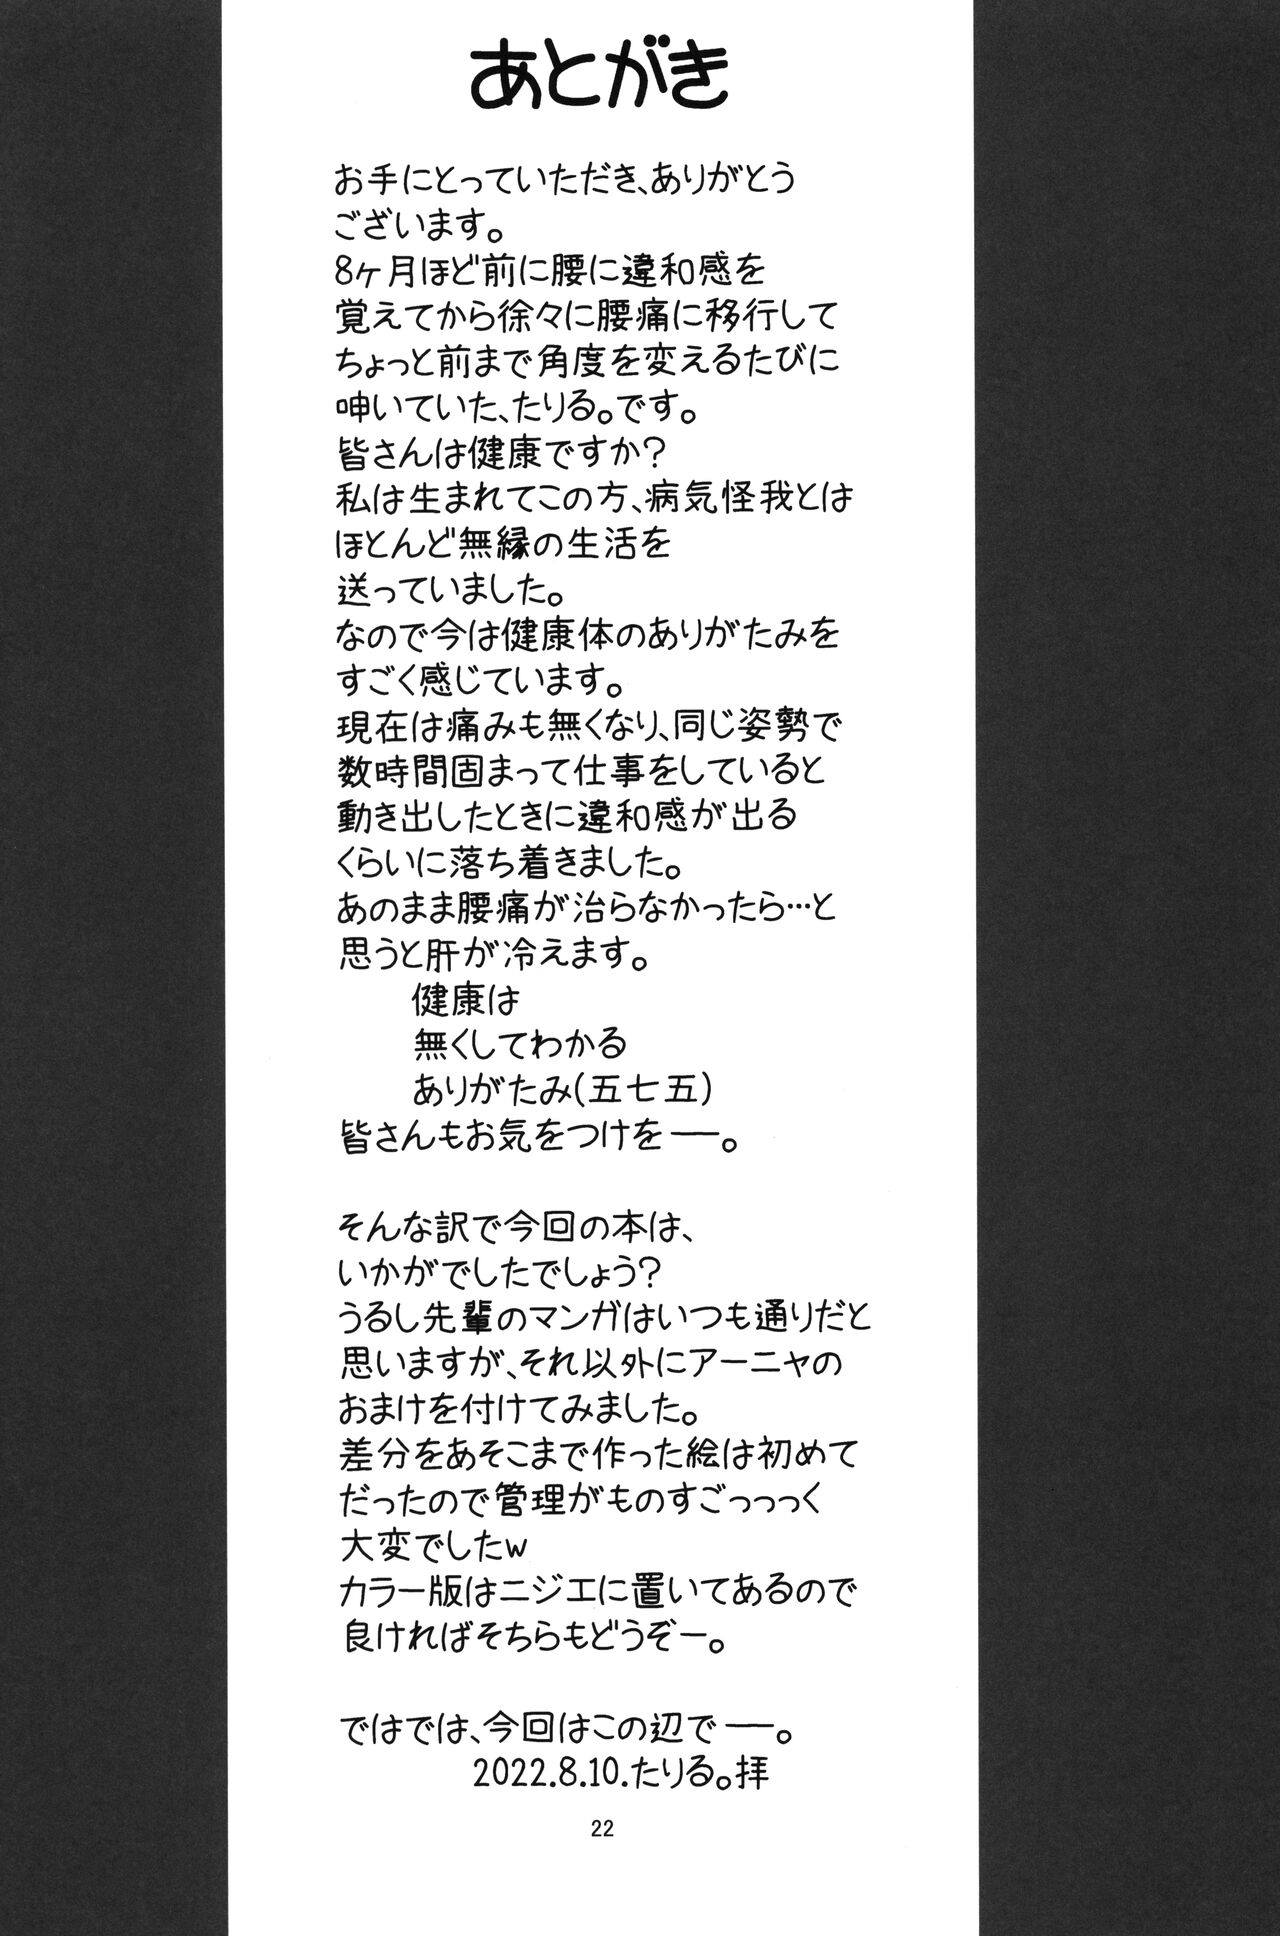 あとがき
お手にとっていただき、ありがとう
ございます。
8ヶ月ほど前に腰に違和感を
覚えてから徐々に腰痛に移行して
ちょっと前まで角度を変えるたびに
呻いていた、たりる。です。
皆さんは健康ですか？
私は生まれてこの方、病気怪我とは
ほとんど無縁の生活を
送っていました。
なので今は健康体のありがたみを
すごく感じています。
現在は痛みも無くなり、同じ姿勢で
数時間固まって仕事をしていると
動き出したときに違和感が出る
くらいに落ち着きました。
あのまま腰痛が治らなかったら…と
思うと肝が冷えます。
健康は
無くしてわかる
ありがたみ(五七五)
皆さんもお気をつけを──。
そんな訳で今回の本は、
いかがでしたでしょう？
うるし先輩のマンガはいつも通りだと
思いますが、それ以外にアーニャの
おまけを付けてみました。
差分をあそこまで作った絵は初めて
だったので管理がものすごっっっく
大変でしたw
カラー版はニジエに置いてあるので
良ければそちらもどうぞー。
ではでは、今回はこの辺で──。
2022.8.10.たりる。拝
22